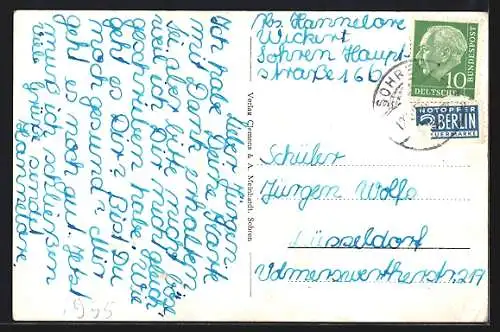 Lieber Jürgen
Ich habe Deine Karte
mit Dank erhalten.
Sei aber bitte nicht böse
das ich nicht gleich
geschrieben habe. Wie
geht es Dir? Bist Du
noch gesund? Mir
geht es noch gut. Jetzt
muß ich schließen
viele Grüße sendet
Hannelore
Verlag Clemens & A. Meinhardt, Sohren
Abs. Hannelore
Wickert
Sohren Haupt-
straße 160
10
DEUTSCHE BUNDESPOST
SOHR
NOTOPFER
2 BERLIN
STEUERMARKE
Schüler
Jürgen Wolfs
Düsseldorf
Volmerswertherstr. 219